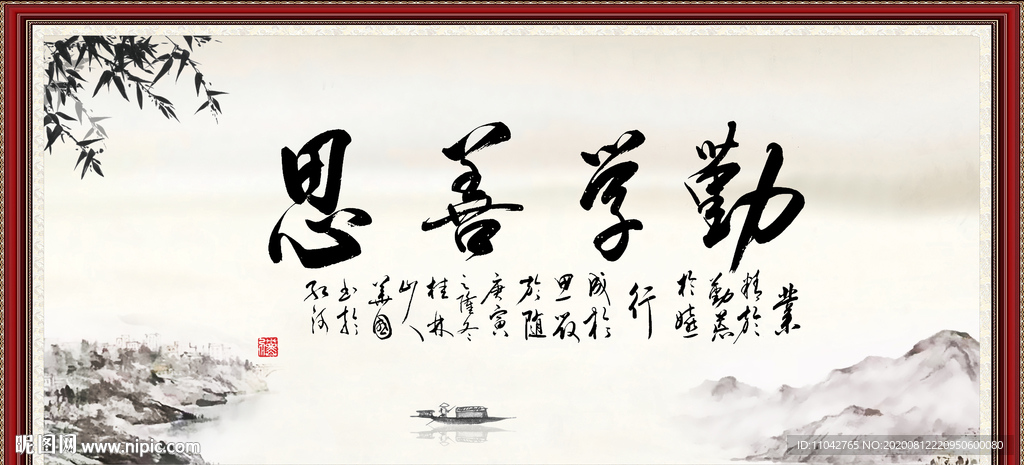 勤学善思
業
精於
勤荒
於嬉
行
成於
思毁
於随
庚寅
之隆冬
桂林
山人
華國
书於
昵图网 www.nipic.com
ID:11042765 NO:20200612220950600080